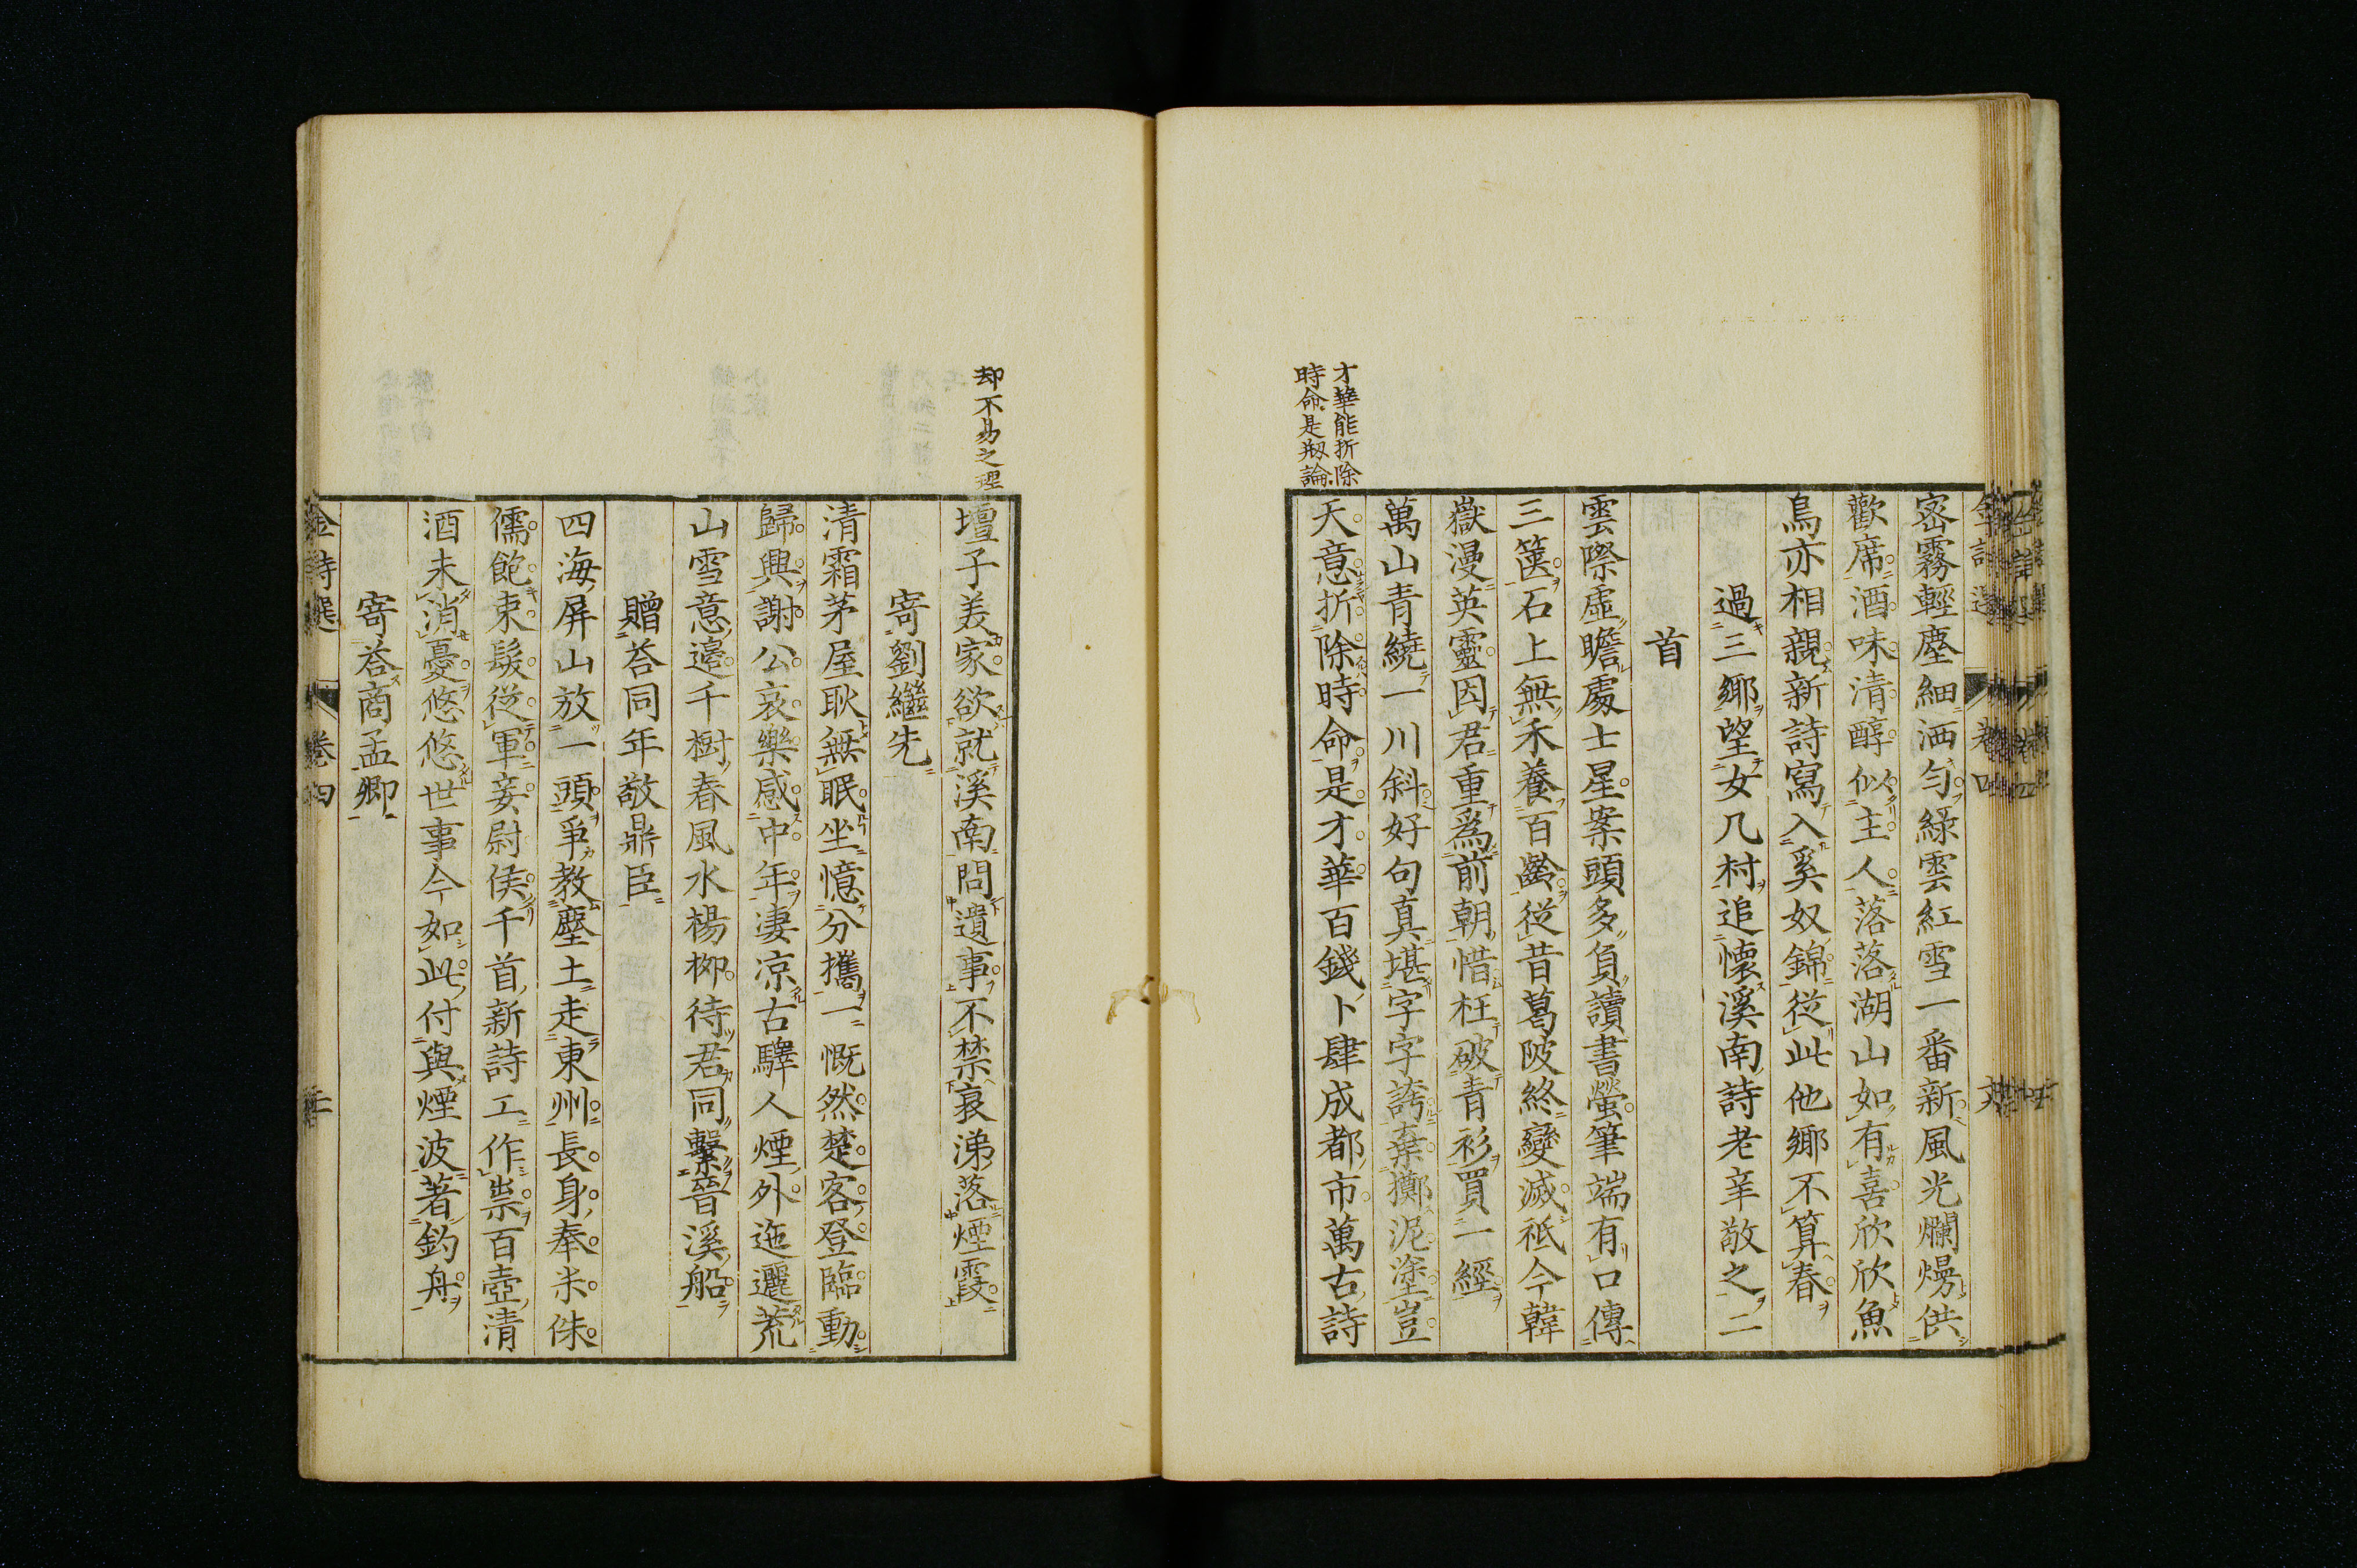 密霧輕塵細洒勻綠雲紅雪一番新風光爛熳供
歡席酒味清醇似主人落落湖山如有喜欣欣魚
鳥亦相親新詩寫入奚奴錦從此他鄉不算春
過三鄉望女几村追懷溪南詩老辛敬之二
首
雲際虛瞻處士星案頭多負讀書螢筆端有口傳
三篋石上無禾養百齡從昔葛陂終變滅祇今韓
嶽漫英靈因君重爲前朝惜枉破青衫買一經
萬山青繞一川斜好句真堪字字誇棄擲泥塗豈
天意折除時命是才華百錢卜肆成都市萬古詩
才華能折除
時命是剏論
却不易之理
壇子美家欲就溪南問遺事不禁衰涕落煙霞
寄劉繼先
清霜茅屋耿無眠坐憶分攜一慨然楚客登臨動
歸興謝公哀樂感中年凄凉古驛人煙外迤邐荒
山雪意邊千樹春風水楊柳待君同繫晉溪船
贈荅同年敬鼎臣
四海屏山放一頭爭教塵土走東州長身奉米侏
儒飽束髮從軍妾尉侯千首新詩工作祟百壺清
酒未消憂悠悠世事今如此付與煙波著釣舟
寄荅商孟卿
金詩選 卷四 二